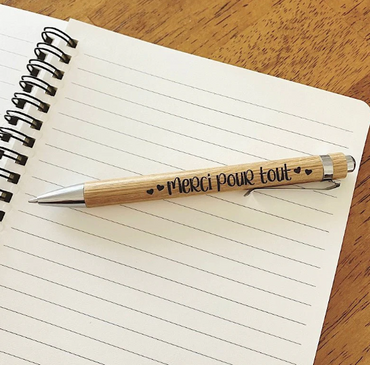 Merci pour tout